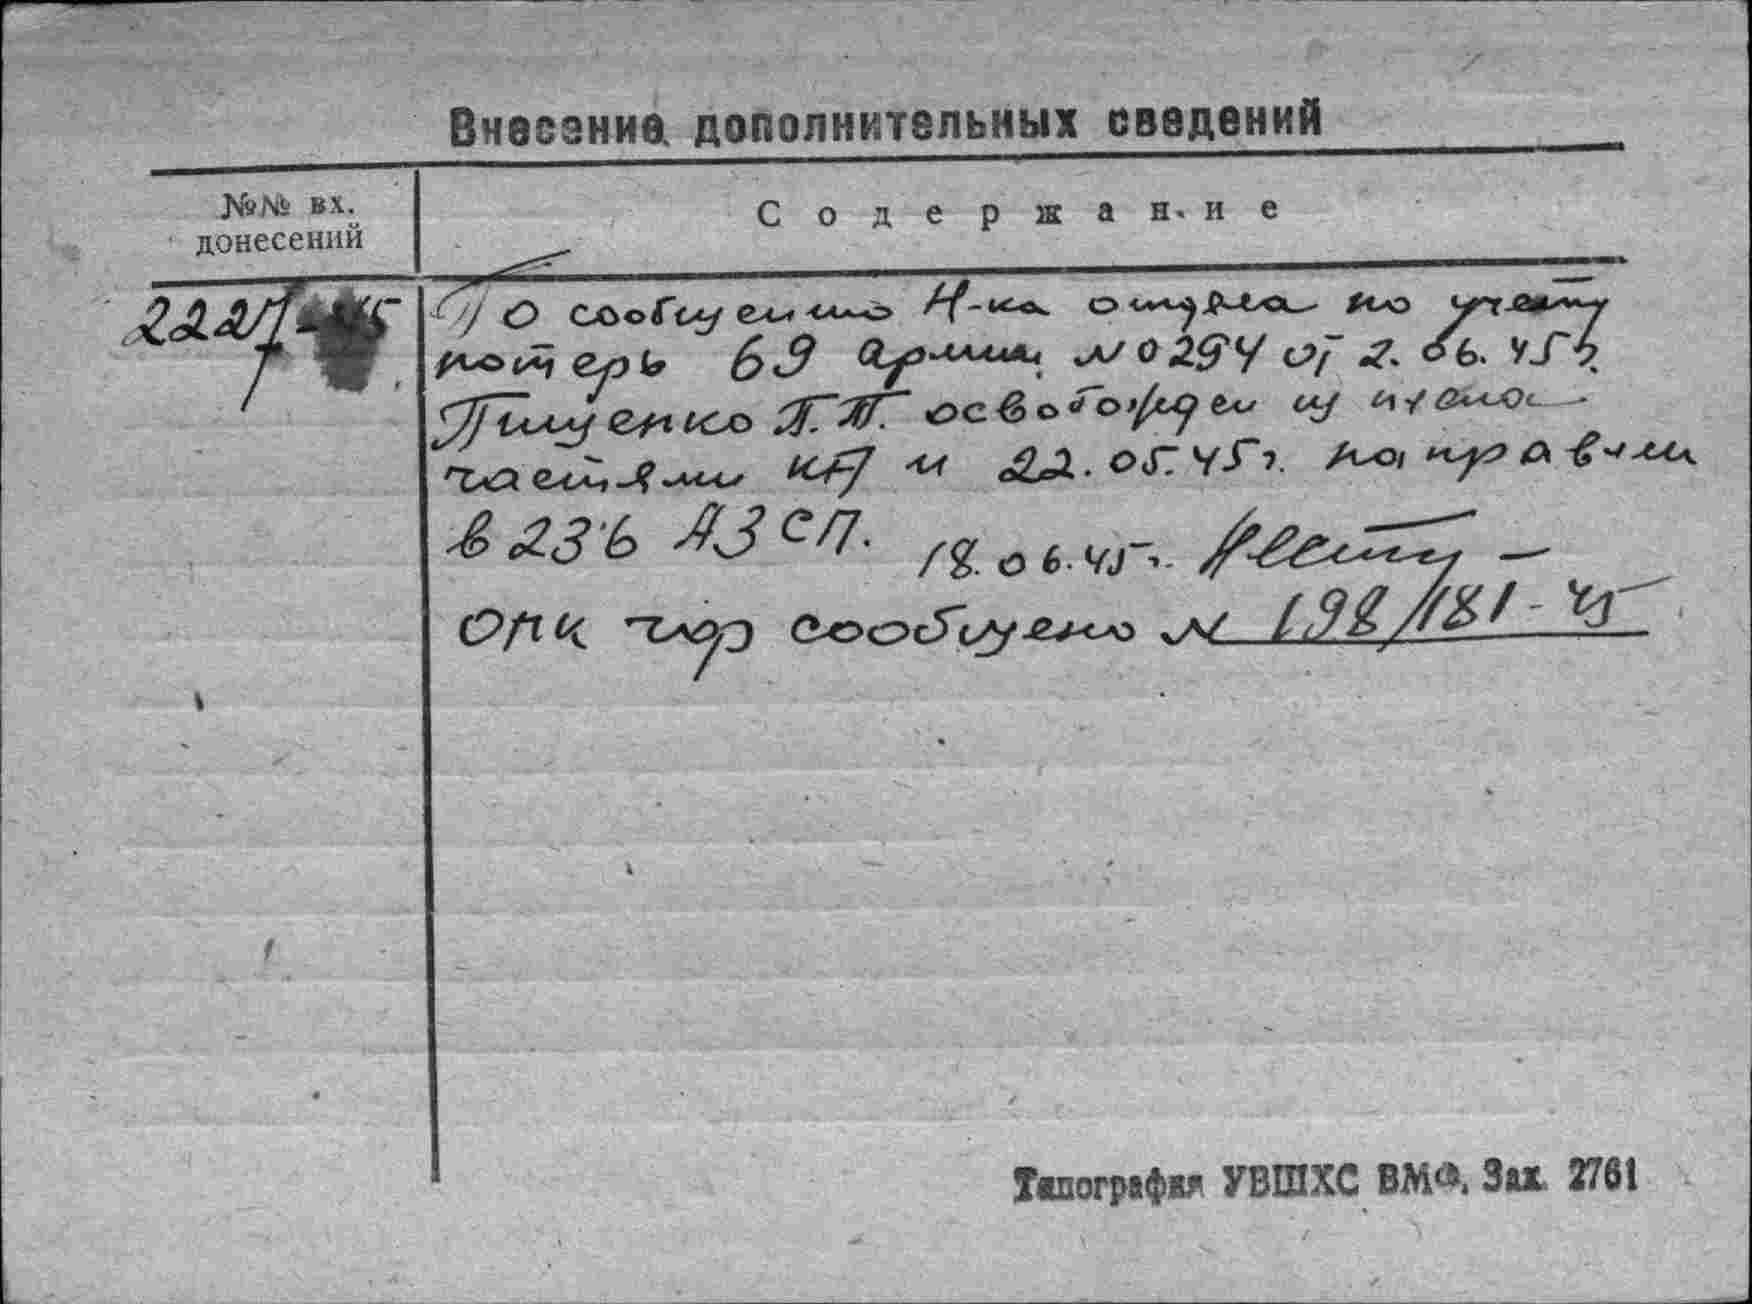 Внесение дополнительных сведений
№№ вх.
донесений
Содержание
По сообщению Н-ка отдела по учету
потерь 69 армии №0294 от 2.06.45г.
Пищенко П.П. освобожден из плена
частями КА и 22.05.45г. направлен
в 236 АЗСП. 18.06.45г.
опк гвф сообщено № 198/181-45
Типография УВШХС ВМФ. Зак. 2761